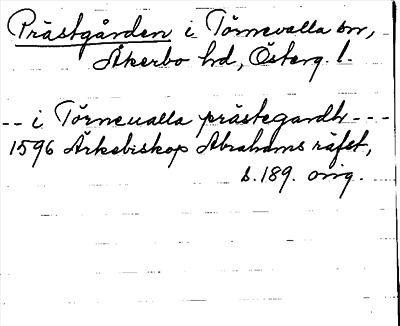 Prästgården i Törnevalla sn,
Åkerbo hd, Österg. l.
-- i Törneualla prästegardh ---
1596 Ärkebiskop Abrahams räfst,
s. 189. orig.